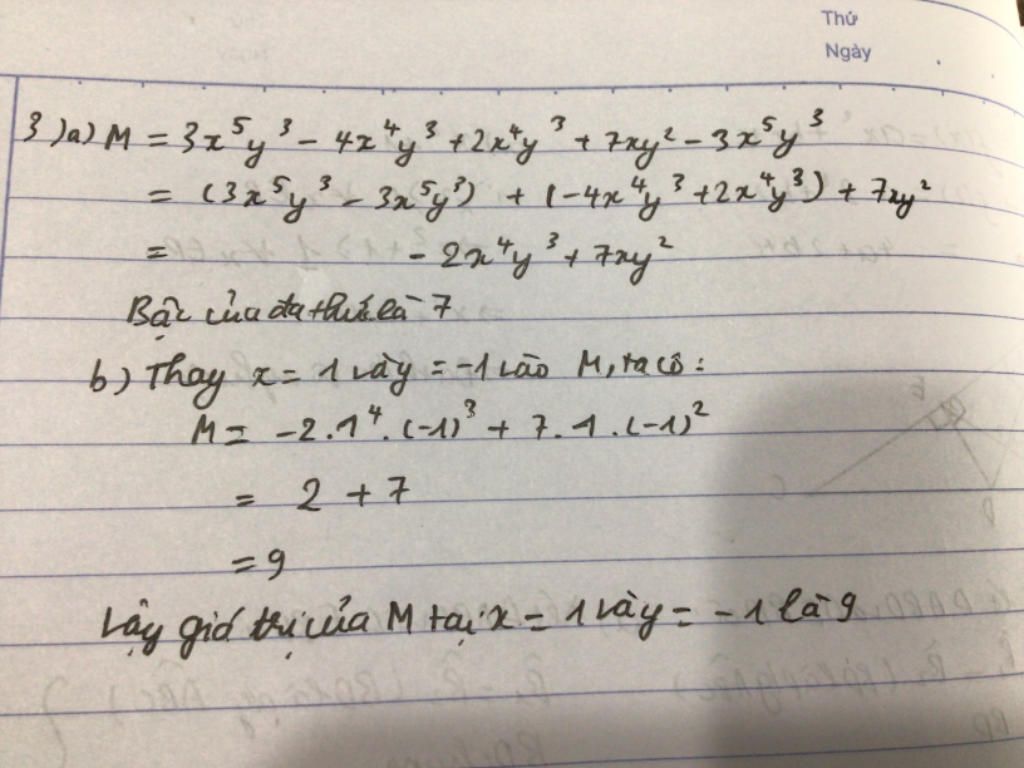 Thứ
Ngày
3)a) M = 3x⁵y³ - 4x⁴y³ + 2x⁴y³ + 7xy² - 3x⁵y³
= (3x⁵y³ - 3x⁵y³) + (-4x⁴y³ + 2x⁴y³) + 7xy²
= - 2x⁴y³ + 7xy²
Bậc của đa thức là 7
b) Thay x = 1 và y = -1 vào M, ta có:
M = -2.1⁴.(-1)³ + 7.1.(-1)²
= 2 + 7
= 9
Vậy giá trị của M tại x = 1 và y = -1 là 9